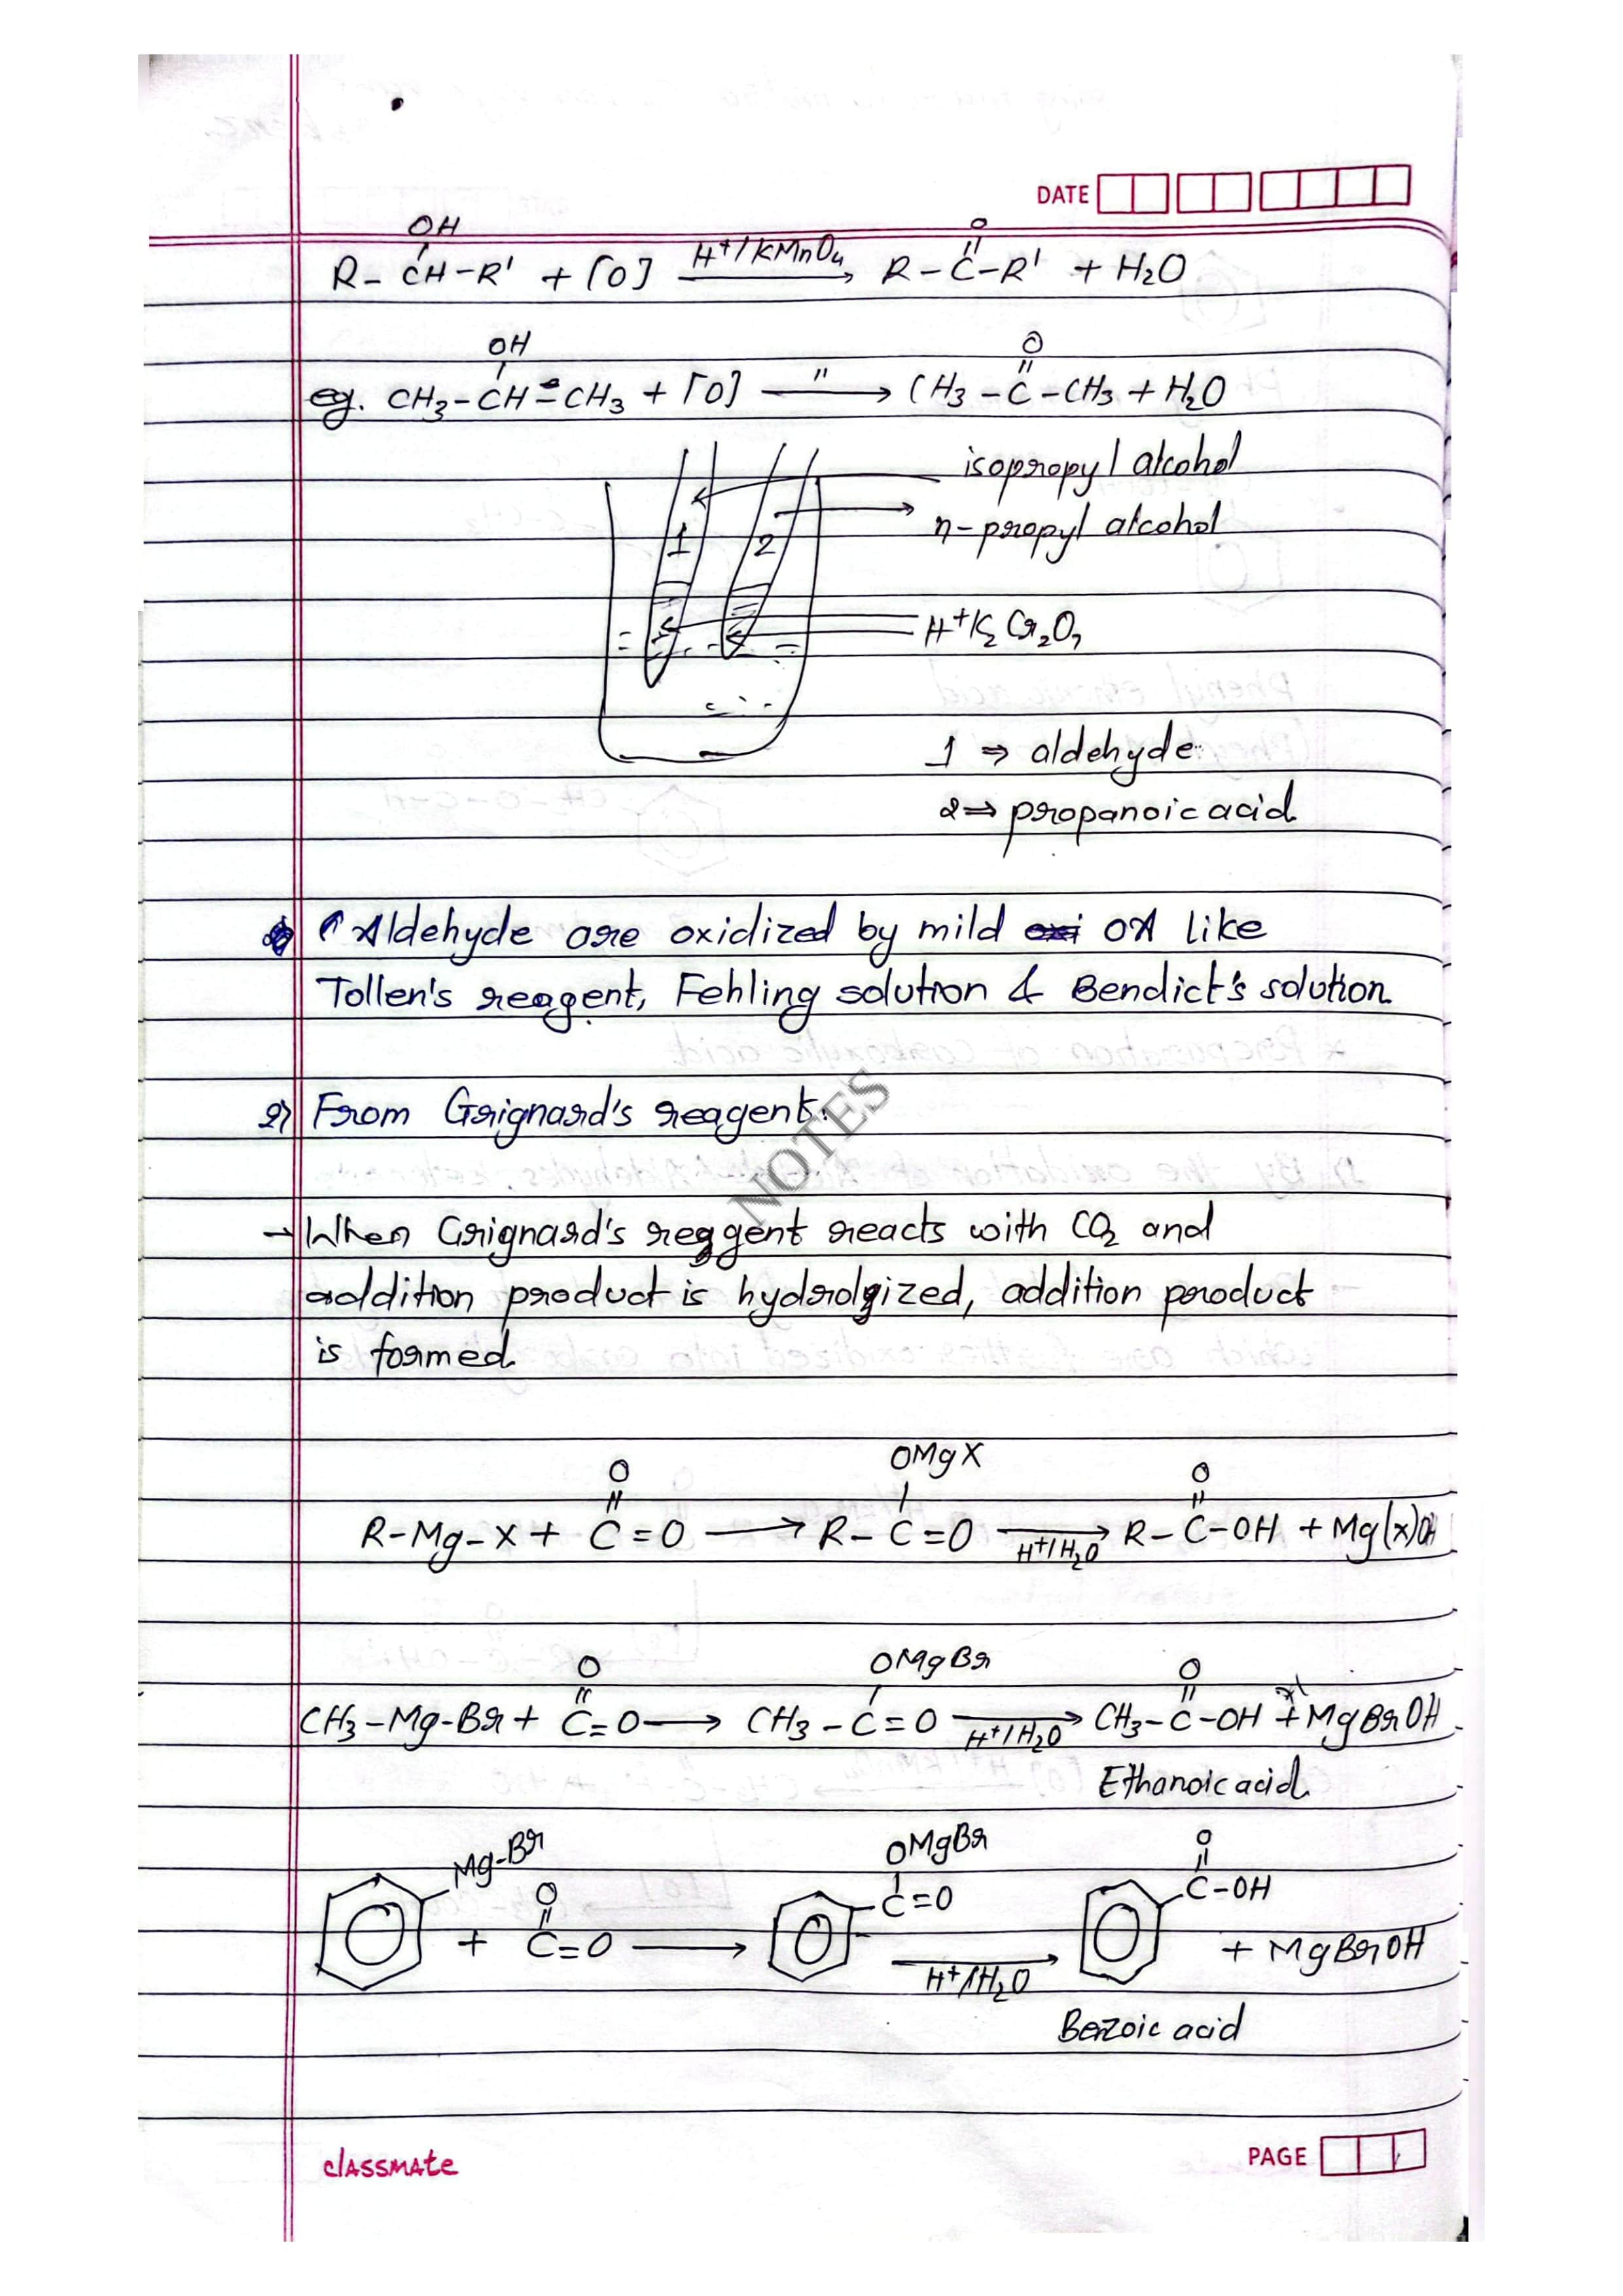 DATE
OH
R-CH-R' + [O] H+/KMnO4 → R-C-R' + H2O
O
OH
eg. CH3-CH-CH3 + [O] " → CH3-C-CH3 + H2O
O
isopropyl alcohol
1 2
n-propyl alcohol
H+K2Cr2O7
1 ⇒ aldehyde
2 ⇒ propanoic acid
Aldehyde are oxidized by mild OA like
Tollen's reagent, Fehling solution & Bendict's solution
2) From Grignard's reagent.
NOTES
→ When Grignard's reggent reacts with CO2 and
addition product is hydrolyized, addition poroduct
is formed
O OMgX O
R-Mg-X + C=O → R-C=O H+/H2O → R-C-OH + Mg(X)OH
O OMgBr O
CH3-Mg-Br + C=O → CH3-C=O H+/H2O → CH3-C-OH + MgBrOH
Ethanoic acid
Mg-Br O OMgBr O
+ C=O → C=O H+/H2O → C-OH + MgBrOH
Benzoic acid
classmate
PAGE